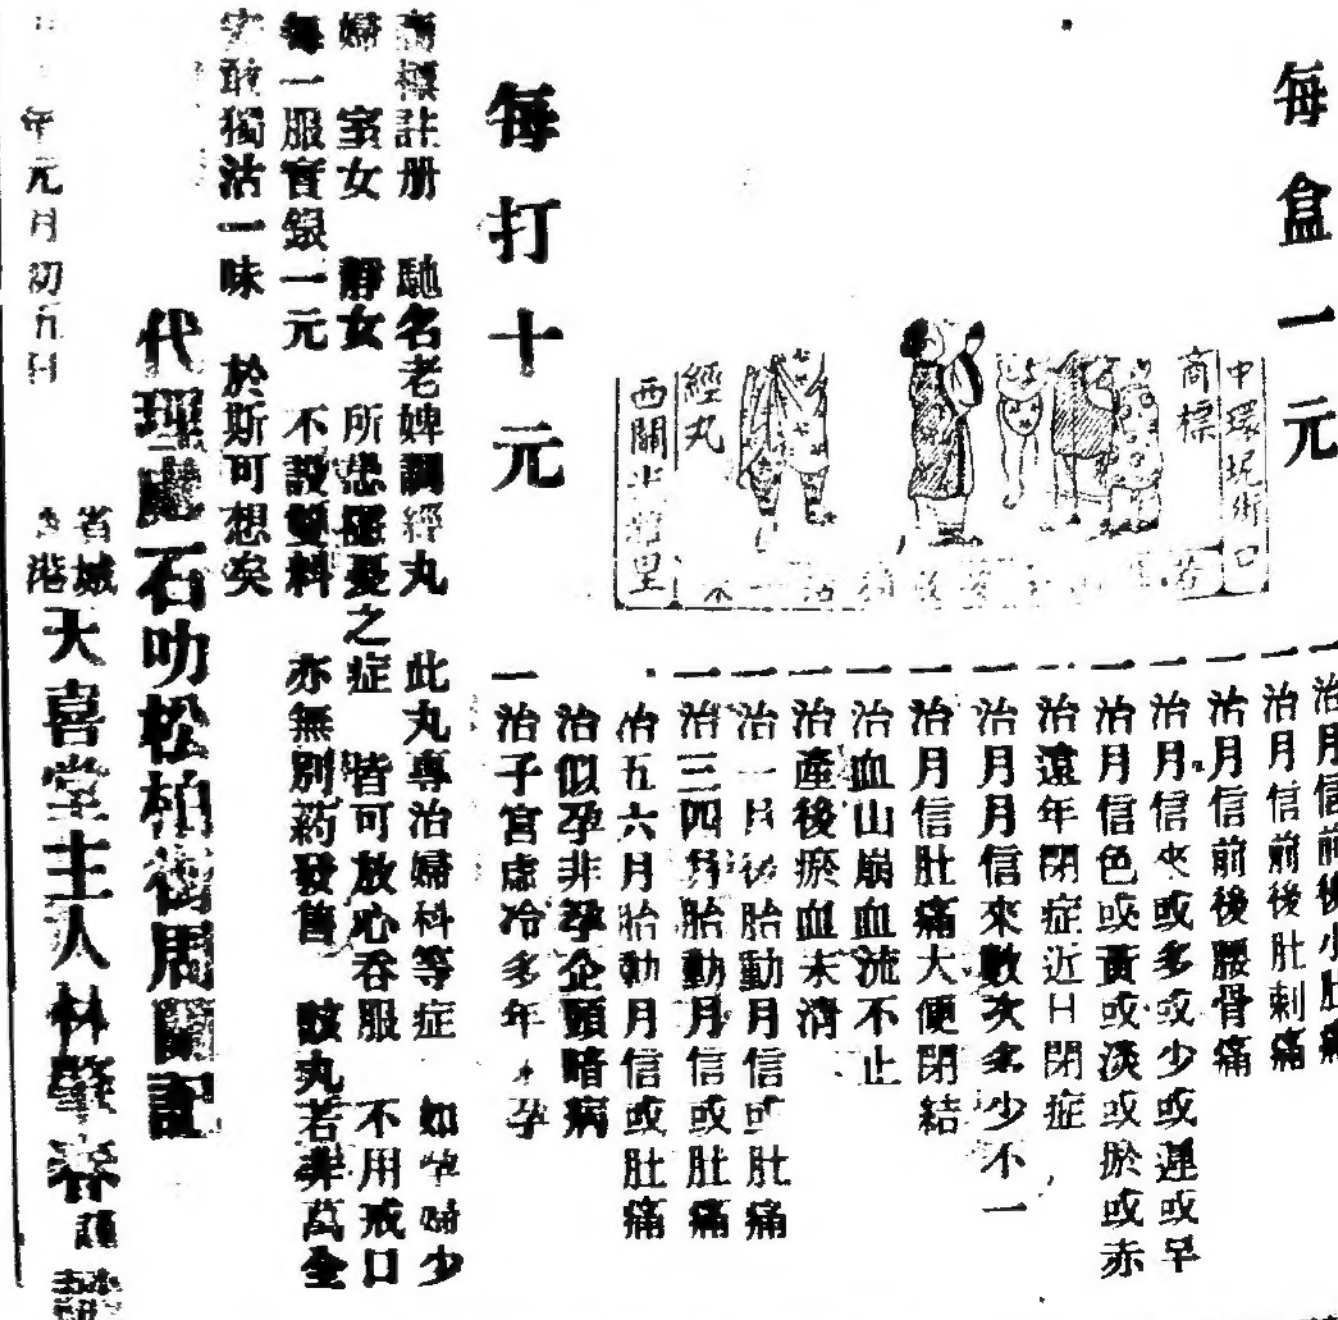 每盒一元
中環坭街口
商標
經丸
西關 里
治月信前後小肚痛
一治月信前後肚刺痛
一治月信前後腰骨痛
一治月信來或多或少或遲或早
一治月信色或黃或淡或瘀或赤
治遠年閉症近日閉症
一治月月信來數次多少不一
一治月信肚痛大便閉結
一治血山崩血流不止
一治產後瘀血未清
一治一月後胎動月信或肚痛
一治三四月胎動月信或肚痛
治五六月胎動月信或肚痛
治似孕非孕企頭暗病
一治子宮虛冷多年 孕
每打十元
商標註册 馳名老婢調經丸 此丸專治婦科等症 如 婦少
婦 室女 靜女 所患 憂之症 皆可放心吞服 不用戒口
每一服實銀一元 不設雙料 亦無別葯發售 該丸若非萬全
敢獨沽一味 於斯可想矣
代理處石叻松柏街周蘭記
省城
港
天喜堂主人林肇春謹
年元月初五日